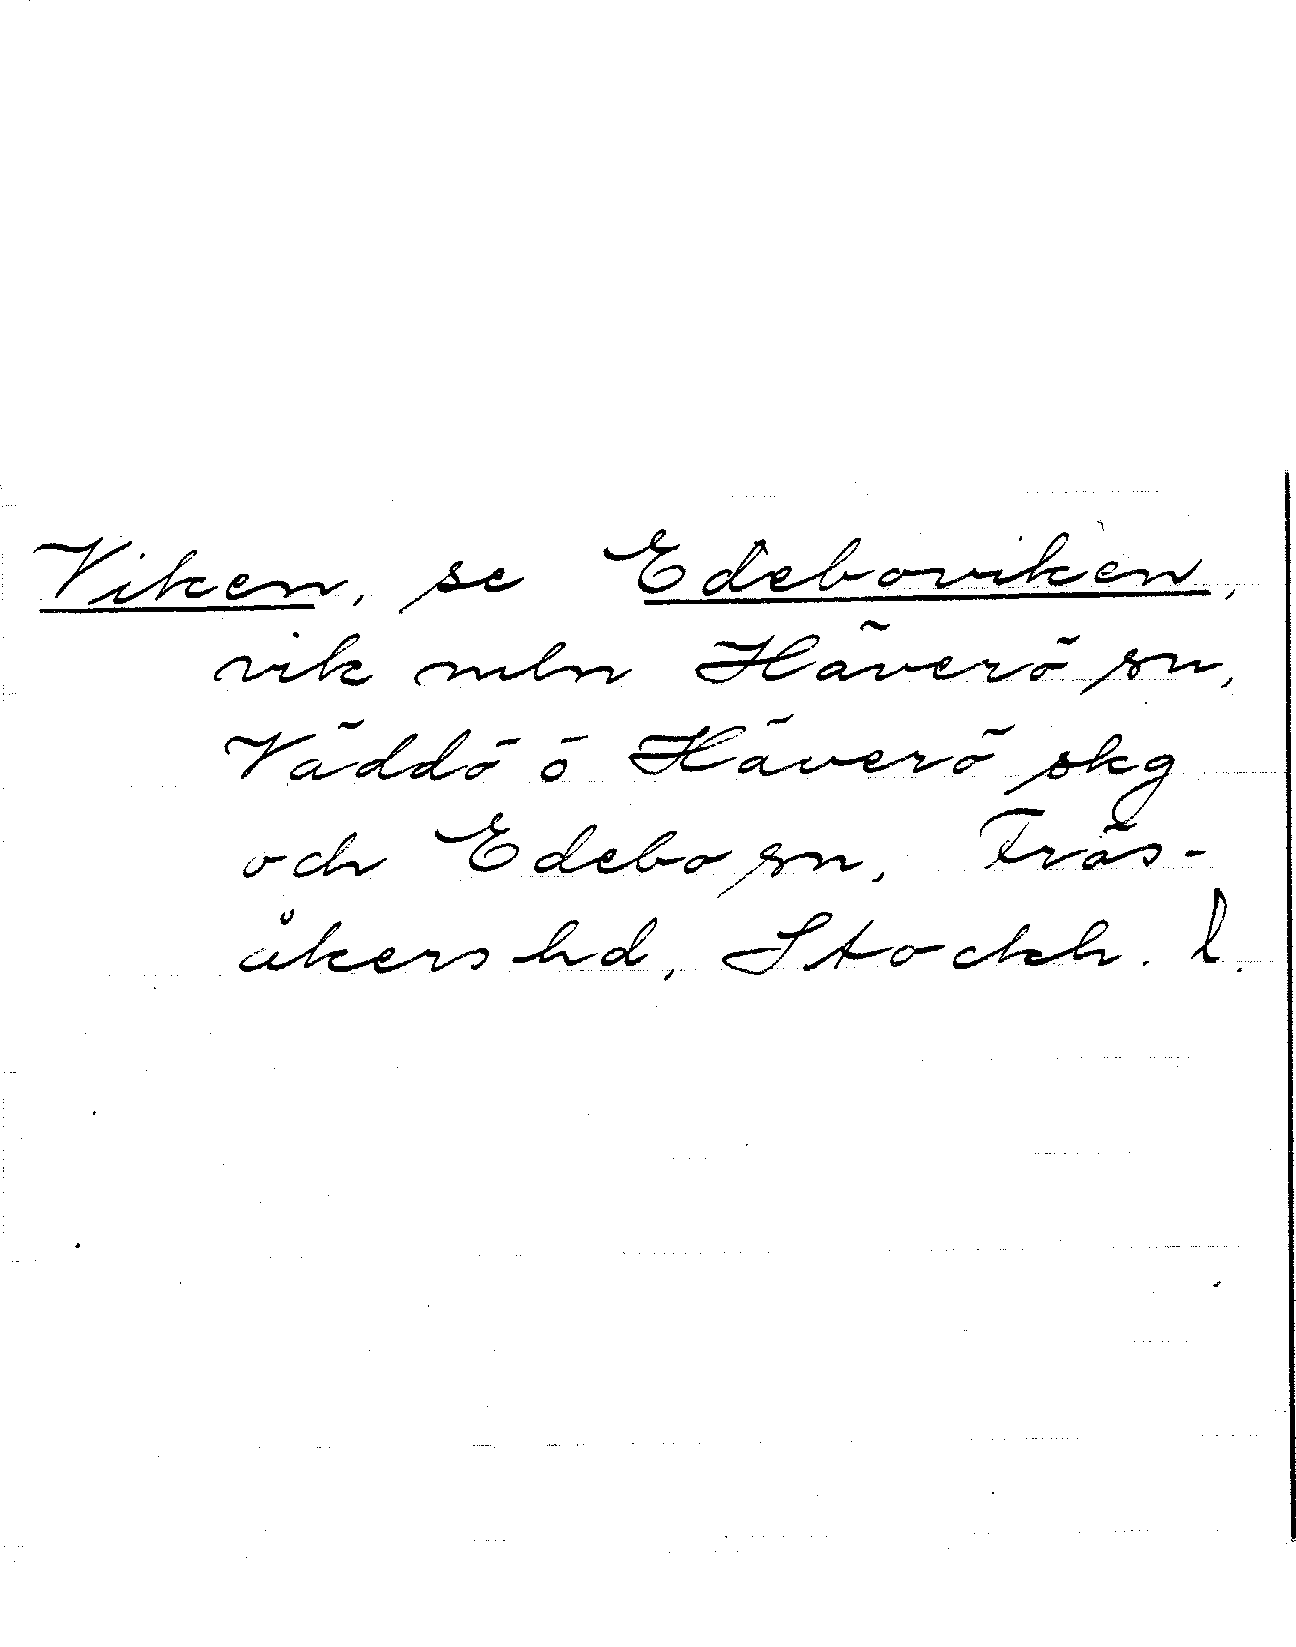 Viken, se Edeboviken,
vik mln Häverö sn,
Väddö ö Häverö skg
och Edebo sn, Frös-
åkers hd, Stockh. l.